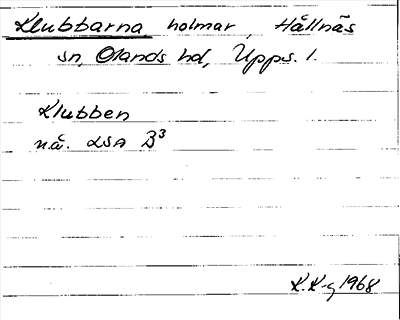 Klubbarna holmar, Hållnäs
sn, Olands hd, Upps. l.
Klubben
nå. LSA B³
K. K-g 1968